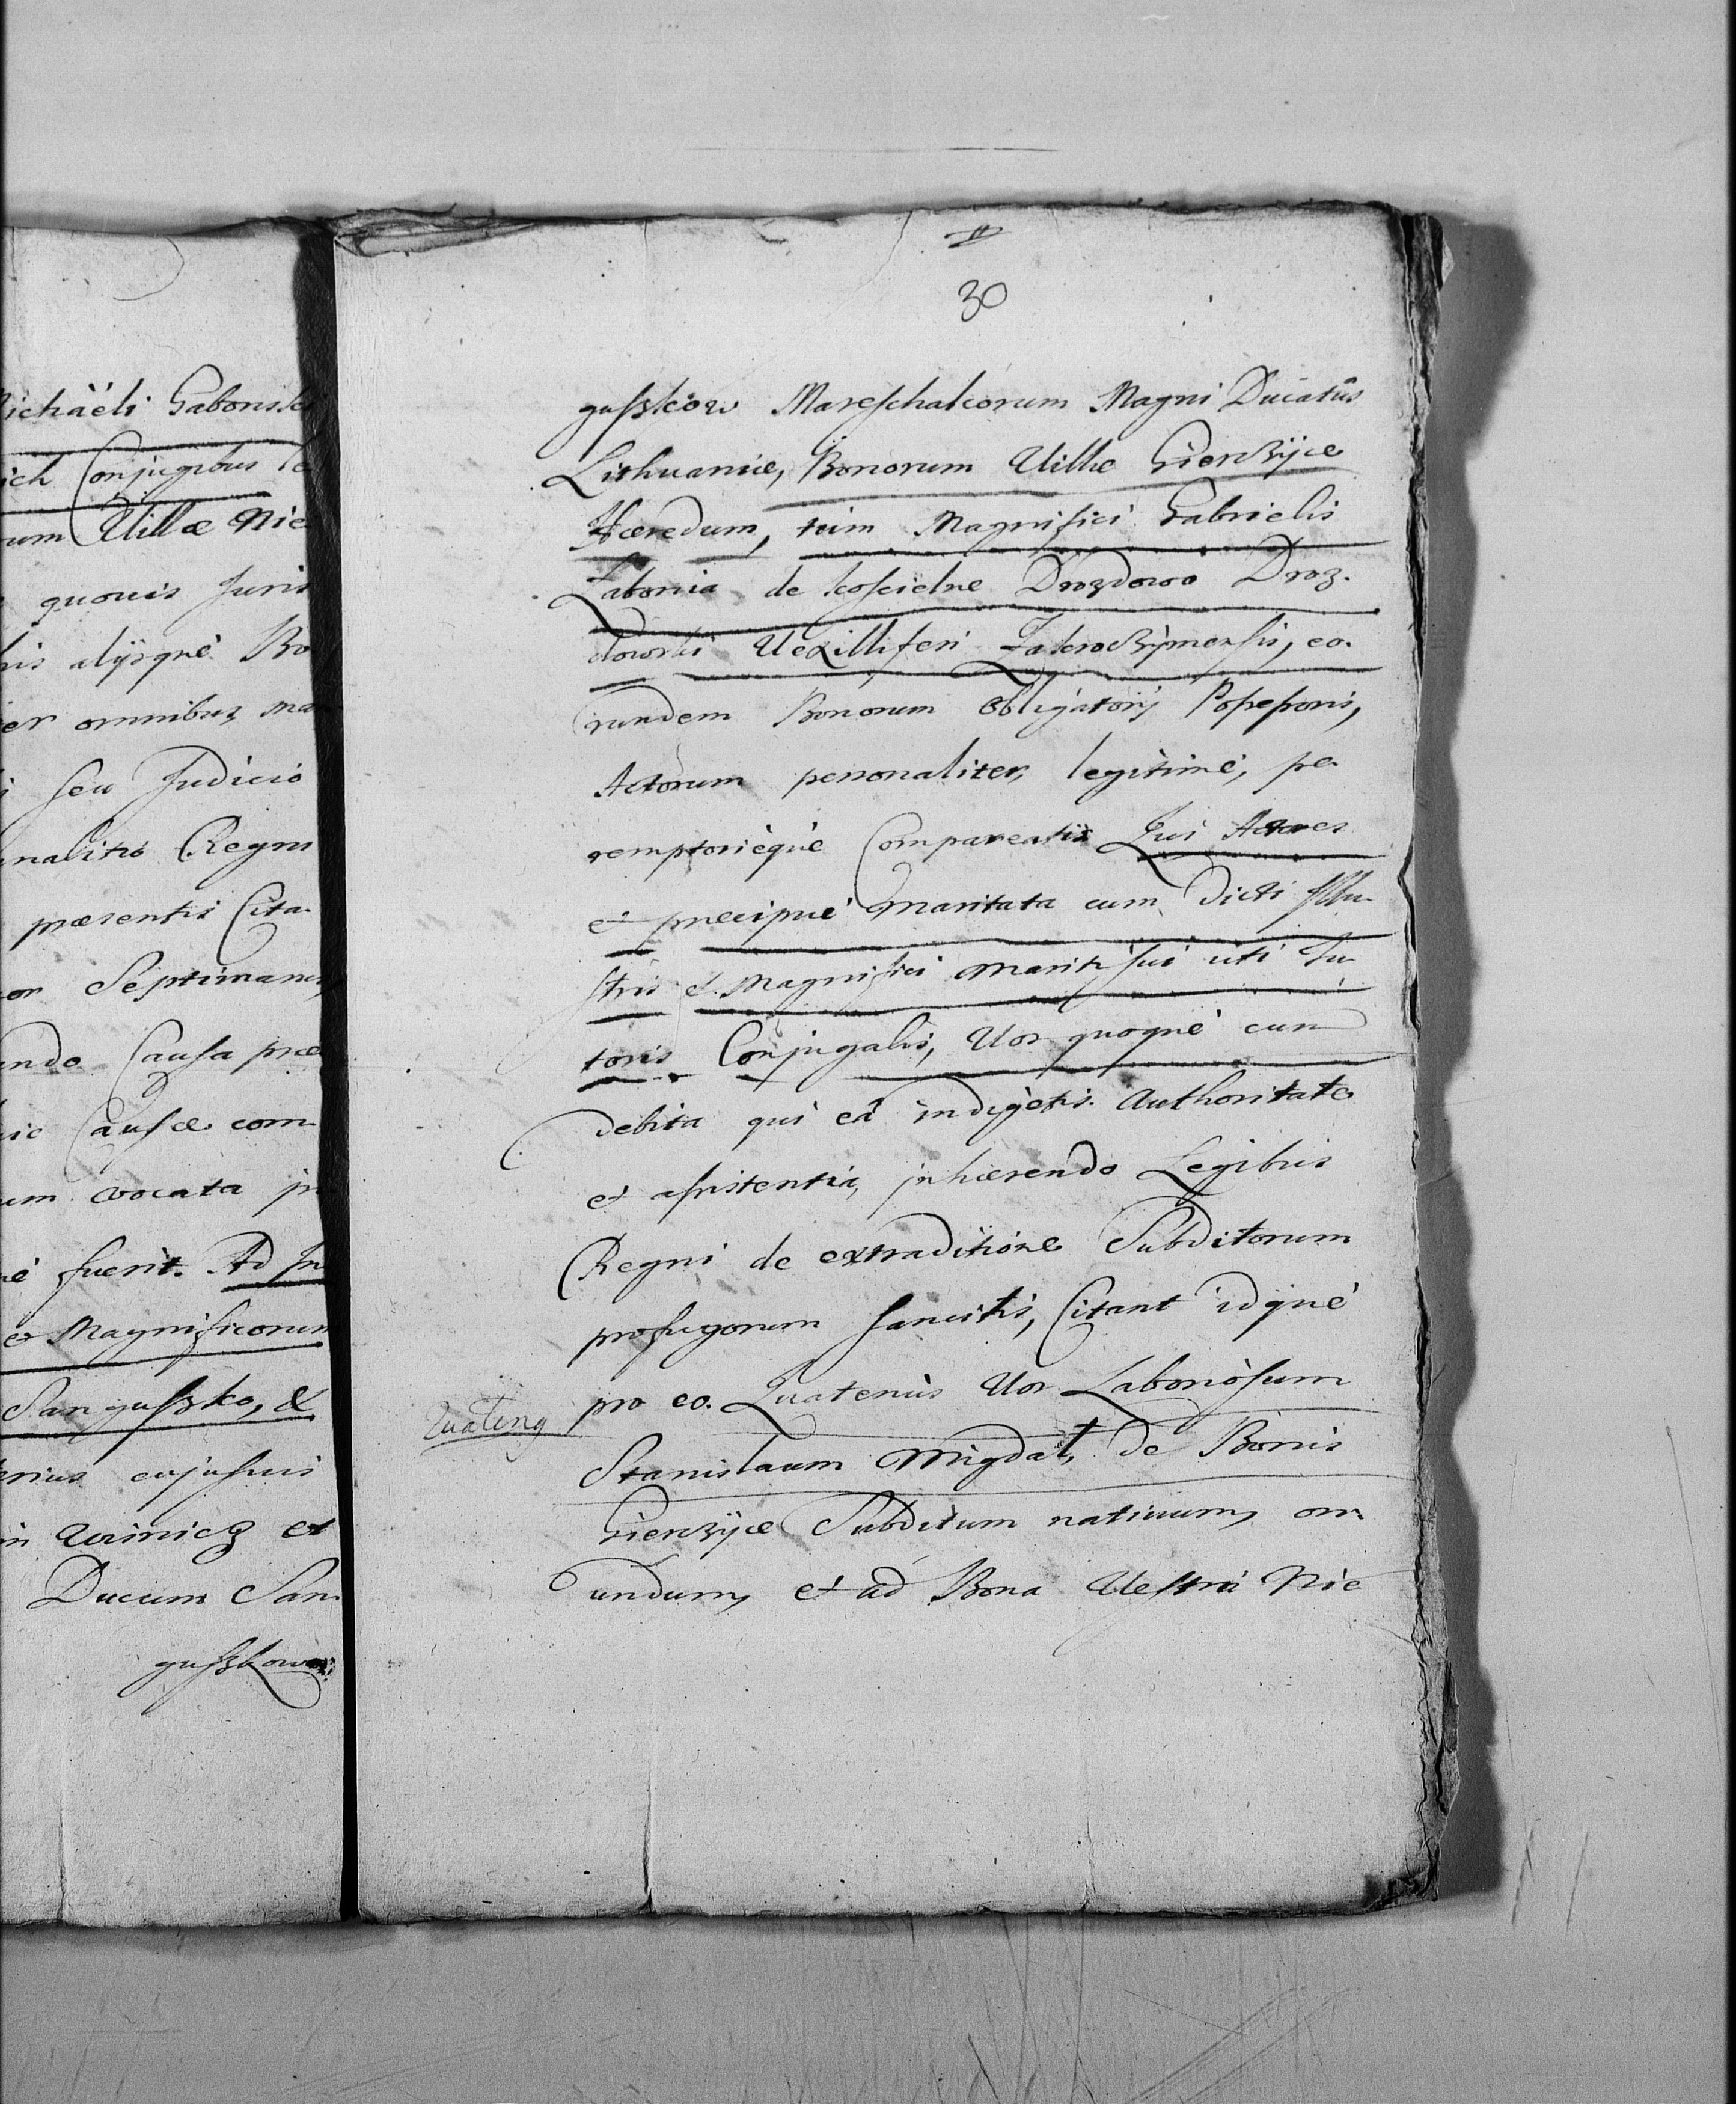 ichäeli Gaborisk
ich Conjugibus le
um Villæ Nie
quovis Juris
nis alijsque Bo
er omnibus, ma
i seu Judicio
nalitio Regni
præsentis Cita-
or Septimanas
ndo Causa præ
ic Causæ com-
um vocata in
e fuerit. Ad In
et Magnificorum
Sanguszko, &
erius cujusvis
in Winicz et
Ducum San-
guszkow
30
guszkow Mareschalcorum Magni Ducatûs
Lithuaniæ, Bonorum Villæ Gierczÿce
Hæredum, tùm Magnifici Gabrielis
de Koscielne Drozdowo Droz-
dowski Vexilliferi Zakroczÿmensis, eo-
rundem Bonorum Obligatorij Possessoris,
Actorum personaliter, legitimè, pe-
remptoriéquè Compareatis Qui Actores
et præcipuè Maritata cum dicti Illu-
stris et Magnifici Mariti sui uti Tu-
toris Conjugalis, Vos quoquè cum
debita qui eâ indigetis Authoritate
et assistentiâ, inhærendo Legibus
Regni de extraditione Subditorum
profugorum sancitis, Citant idquè
pro eo. Quatenùs Vos Laboriòsum
Quatenq
Stanislaum Migdal, de Bonis
Gierczÿce Subditum nativum, ori-
undum, et ad Bona Vestra Nie